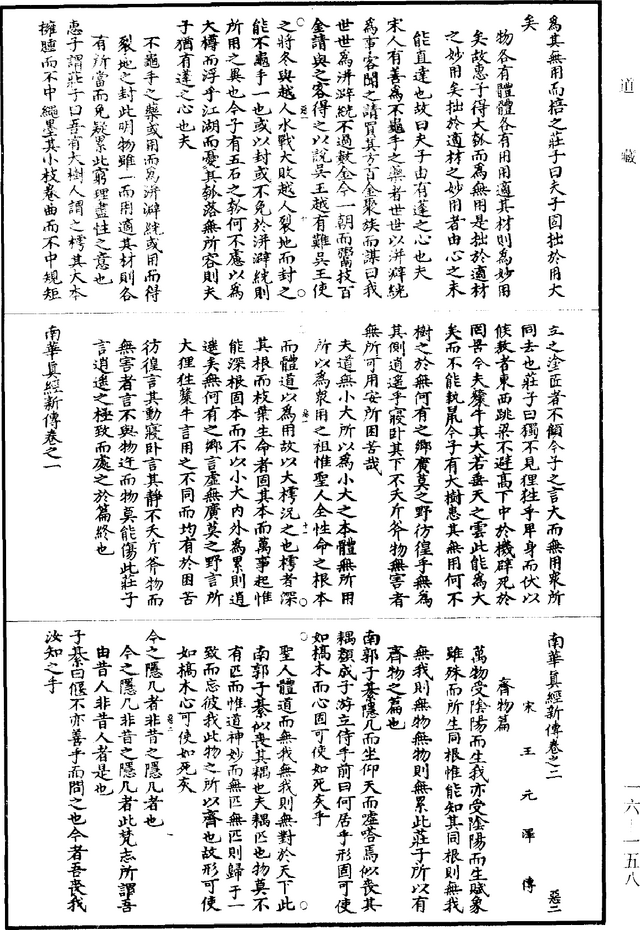 道藏
為其無用而掊之莊子曰夫子固拙於用大
矣
物各有體體各有用用適其材則為妙用
矣故惠子得大瓠而為無用是拙於適材
之妙用矣拙於適材之妙用者由心之未
能直達也故曰夫子由有蓬之心也夫
宋人有善為不龜手之藥者世世以洴澼絖
為事客聞之請買其方百金聚族而謀曰我
世世為洴澼絖不過數金今一朝而鬻技百
金請與之客得之以說吳王越有難吳王使
之將冬與越人水戰大敗越人裂地而封之
能不龜手一也或以封或不免於洴澼絖則
所用之異也今子有五石之瓠何不慮以為
大樽而浮乎江湖而憂其瓠落無所容則夫
子猶有蓬之心也夫
不龜手之藥或用而為洴澼絖或用而得
裂地之封此明物雖一而用適其材則各
有所當而免疑累此窮理盡性之意也
惠子謂莊子曰吾有大樹人謂之樗其大本
擁腫而不中繩墨其小枝卷曲而不中規矩
立之塗匠者不顧今子之言大而無用衆所
同去也莊子曰獨不見狸狌乎卑身而伏以
候敖者東西跳梁不避高下中於機辟死於
罔罟今夫斄牛其大若垂天之雲此能為大
矣而不能執鼠今子有大樹患其無用何不
樹之於無何有之鄉廣莫之野彷徨乎無為
其側逍遥乎寢卧其下不夭斤斧物無害者
無所可用安所困苦哉
夫道無小大所以為小大之本體無所用
所以為衆用之祖惟聖人全性命之根本
而體道以為用故以大樗況之也樗者深
其根而枝葉生命者固其本而萬事起惟
能深根固本而不以小大内外為累則道
遠矣無何有之鄉言虛無廣莫之野言所
大狸狌斄牛言用之不同而均有於困苦
彷徨言其動寢卧言其靜不夭斤斧物而
無害者言不與物迕而物莫能傷此莊子
言逍遥之極致而處之於篇終也
南華真經新傳卷之一
南華真經新傳卷之二 惡二
宋王元澤傳
齊物篇
萬物受陰陽而生我亦受陰陽而生賦象
雖殊而所生同根惟能知其同根則無我
無我則無物無物則無累此莊子所以有
齊物之篇也
南郭子綦隱几而坐仰天而噓嗒焉似喪其
耦顏成子游立侍乎前曰何居乎形固可使
如槁木而心固可使如死灰乎
聖人體道而無我無我則無對於天下此
南郭子綦似喪其耦也夫耦匹也物莫不
有匹而惟道神妙而無匹無匹則歸于一
致而忘彼我此物之所以齊也故形可使
如槁木心可使如死灰
今之隱几者非昔之隱几者也
今之隱几非昔之隱几者此梵志所謂吾
由昔人非昔人者是也
子綦曰偃不亦善乎而問之也今者吾喪我
汝知之乎
一六－一五八